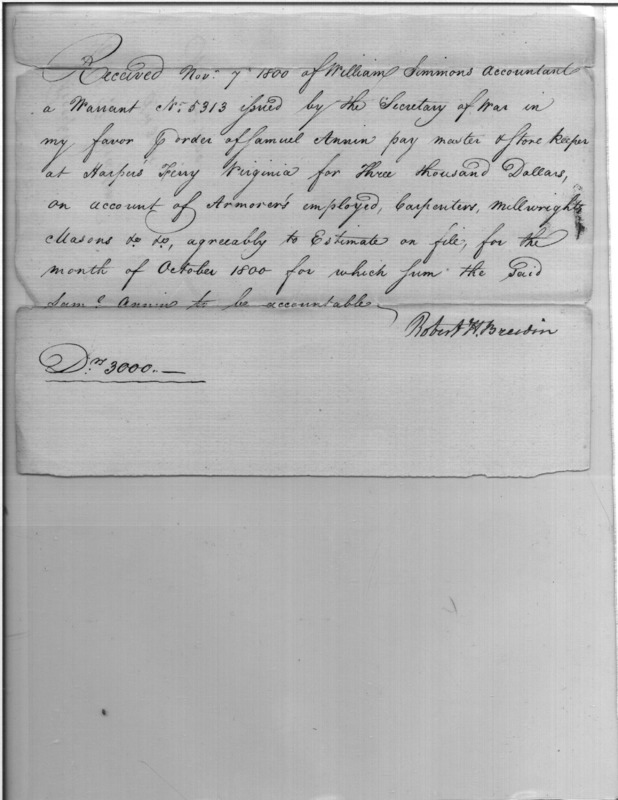 Received Nov.r 7 1800 of William Simmons Accountant
a Warrant No. 5313 issued by the Secretary of War in
my favor P order of Samuel Annin pay master & Store keeper
at Harpers Ferry Virginia for Three thousand Dollars,
on account of Armorers employed, Carpenters, Millwrights
Masons &c &c, agreeably to Estimate on file, for the
month of October 1800 for which sum the said
Sam.l Annin to be accountable
Robert H. Brewin
D.rs 3000.—